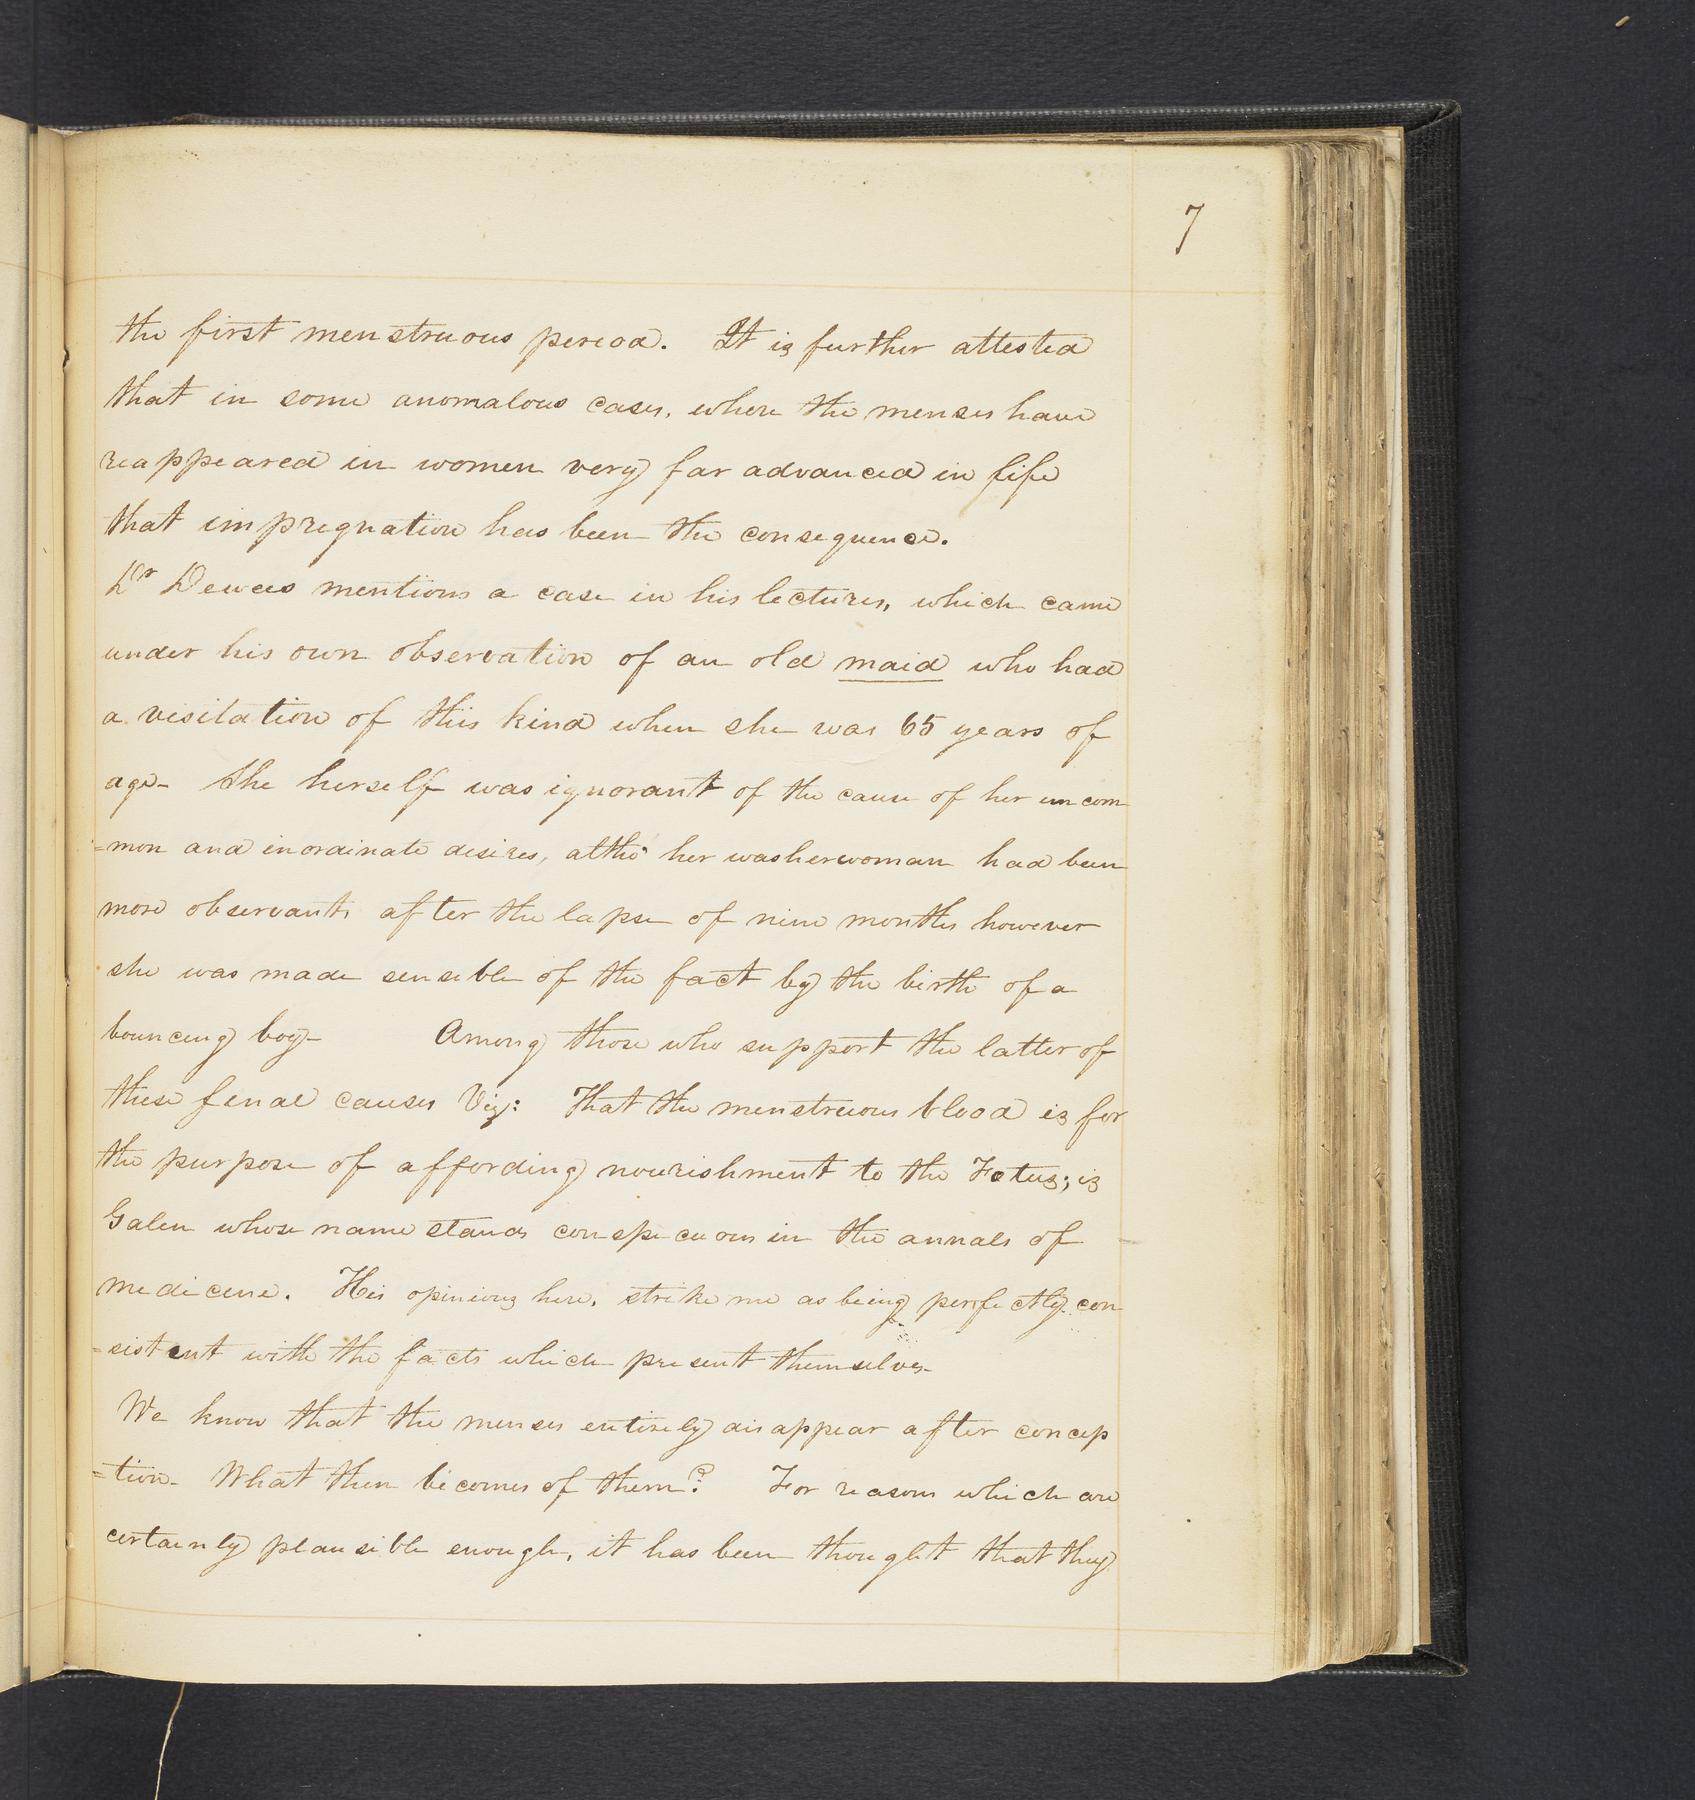 7
the first menstruous period. It is further attested
that in some anomalous cases, where the menses have
reappeared in women very far advanced in life
that impregnation has been the consequence.
Dr Dewees mentions a case in his lectures, which came
under his own observation of an old maid who had
a visitation of this kind when she was 65 years of
age- She herself was ignorant of the cause of her uncom
=mon and inordinate desires, altho' her washerwoman had been
more observant, after the lapse of nine months however
she was made sensible of the fact by the birth of a
bouncing boy- Among those who support the latter of
these final causes Viz: That the menstruous blood is for
the purpose of affording nourishment to the Fetus; is
Galen whose name stands conspicuous in the annals of
medicine. His opinions here, strike me as being perfectly con
=sistent with the facts which present themselves-
We know that the menses entirely disappear after concep
=tion- What then becomes of them? For reasons which are
certainly plausible enough, it has been thought that they